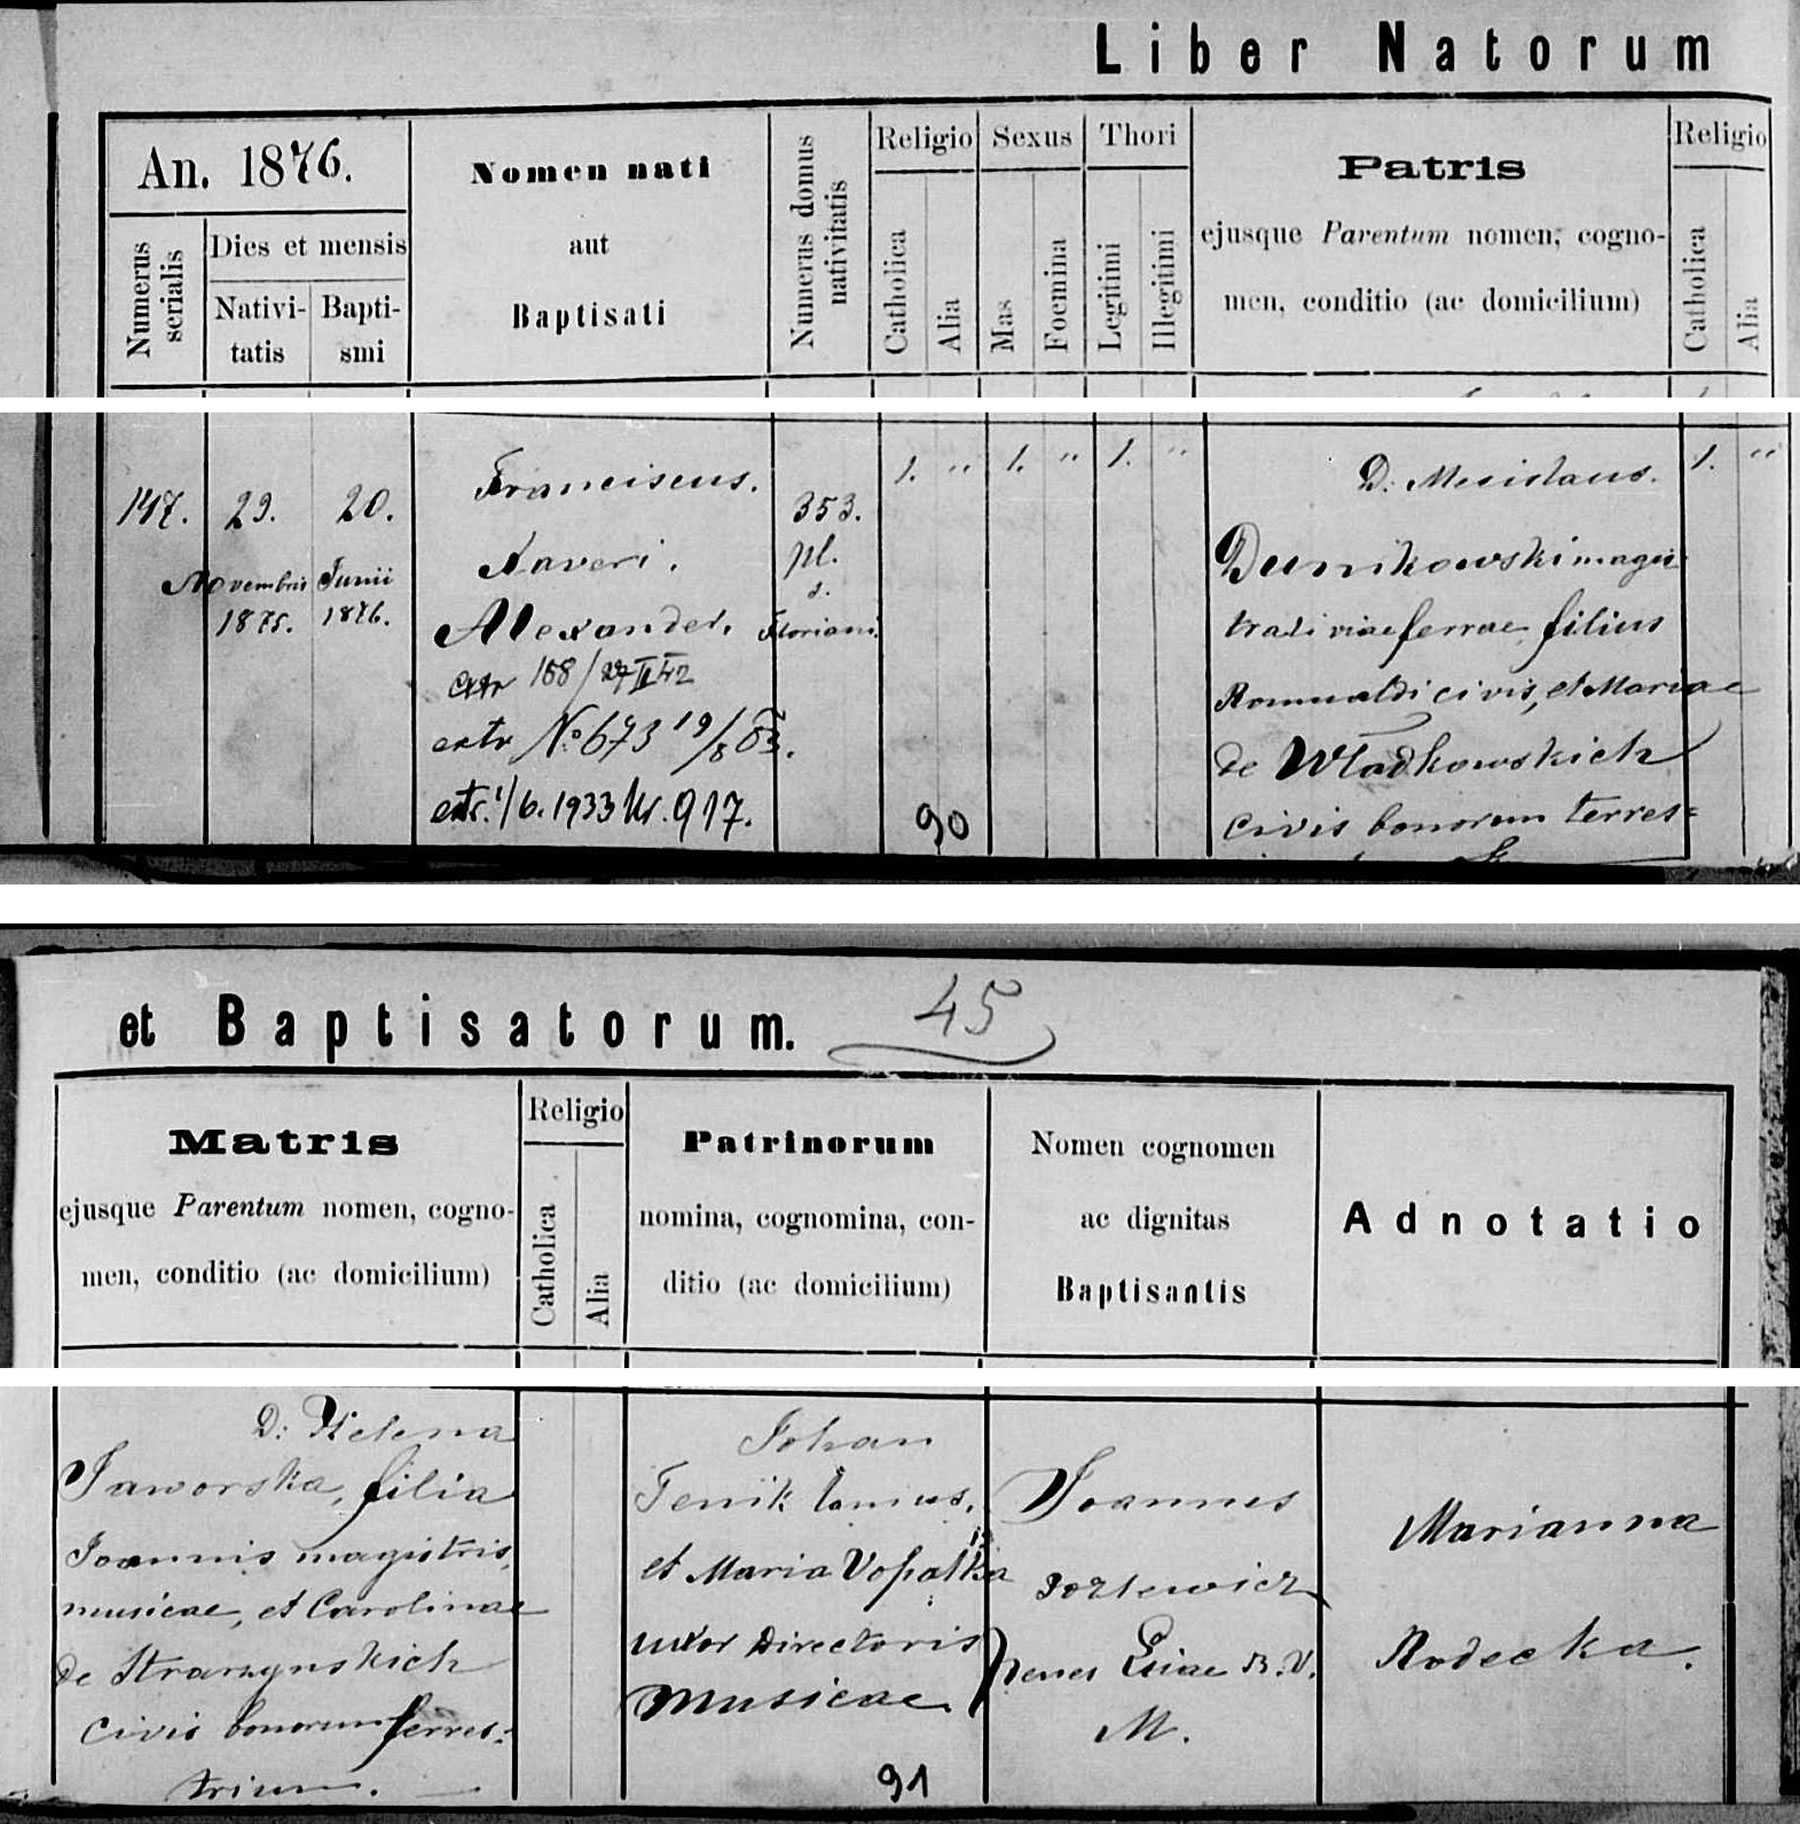 Liber Natorum
An. 1876.
Numerus serialis
Dies et mensis
Nativi-
tatis
Bapti-
smi
Nomen nati
aut
Baptisati
Numerus domus
nativitatis
Religio
Catholica
Alia
Sexus
Mas
Foemina
Thori
Legitimi
Illegitimi
Patris
ejusque Parentum nomen, cogno-
men, conditio (ac domicilium)
Religio
Catholica
Alia
147.
29.
Novembris
1875.
20.
Junii
1876.
Franciscus.
Xaveri.
Alexander.
extr 168/27 II 42
extr No 673 19/8 03.
extr. 1/6. 1933 Nr. 917.
353.
pl.
s.
Floriani.
1. "
1. "
1. "
90
D. Mecislaus.
Dunikowski magis
trati viae ferrae filius
Romualdi civis, et Mariae
de Wladkowskich
civis bonorum terres=
1. "
et Baptisatorum.
45
Matris
ejusque Parentum nomen, cogno-
men, conditio (ac domicilium)
Religio
Catholica
Alia
Patrinorum
nomina, cognomina, con-
ditio (ac domicilium)
Nomen cognomen
ac dignitas
Baptisantis
Adnotatio
D: Helena
Jaworska, filia
Joannis magistris
musicae, et Carolinae
de
civis bonorum terres:
trium.
Johan
et Maria
uxor Directoris
musicae
91
Joannes
penes B. V.
M.
Marianna
Rodecka.